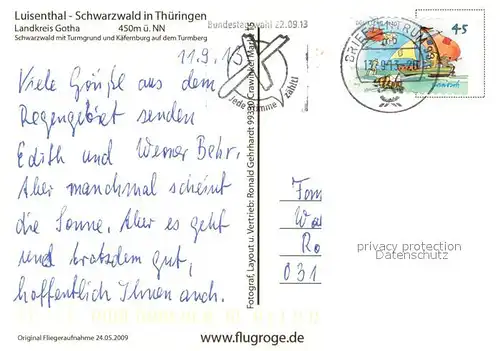 Luisenthal - Schwarzwald in Thüringen
Landkreis Gotha 450m ü. NN
Schwarzwald mit Turmgrund und Käfernburg auf dem Turmberg
Bundestagswahl 22.09.13
Jede Stimme zählt!
BRIEFZENTRUM 99
13.9.13-20
45
11.9.13
Viele Grüße aus dem
Regengebiet senden
Edith und Werner Behr.
Aber manchmal scheint
die Sonne. Aber es geht
uns trotzdem gut,
hoffentlich Ihnen auch.
Fotograf, Layout u. Vertrieb: Ronald Gehrhardt 99330 Crawinkel
Ro
031
privacy protection
Datenschutz
Original Fliegeraufnahme 24.05.2009
www.flugroge.de